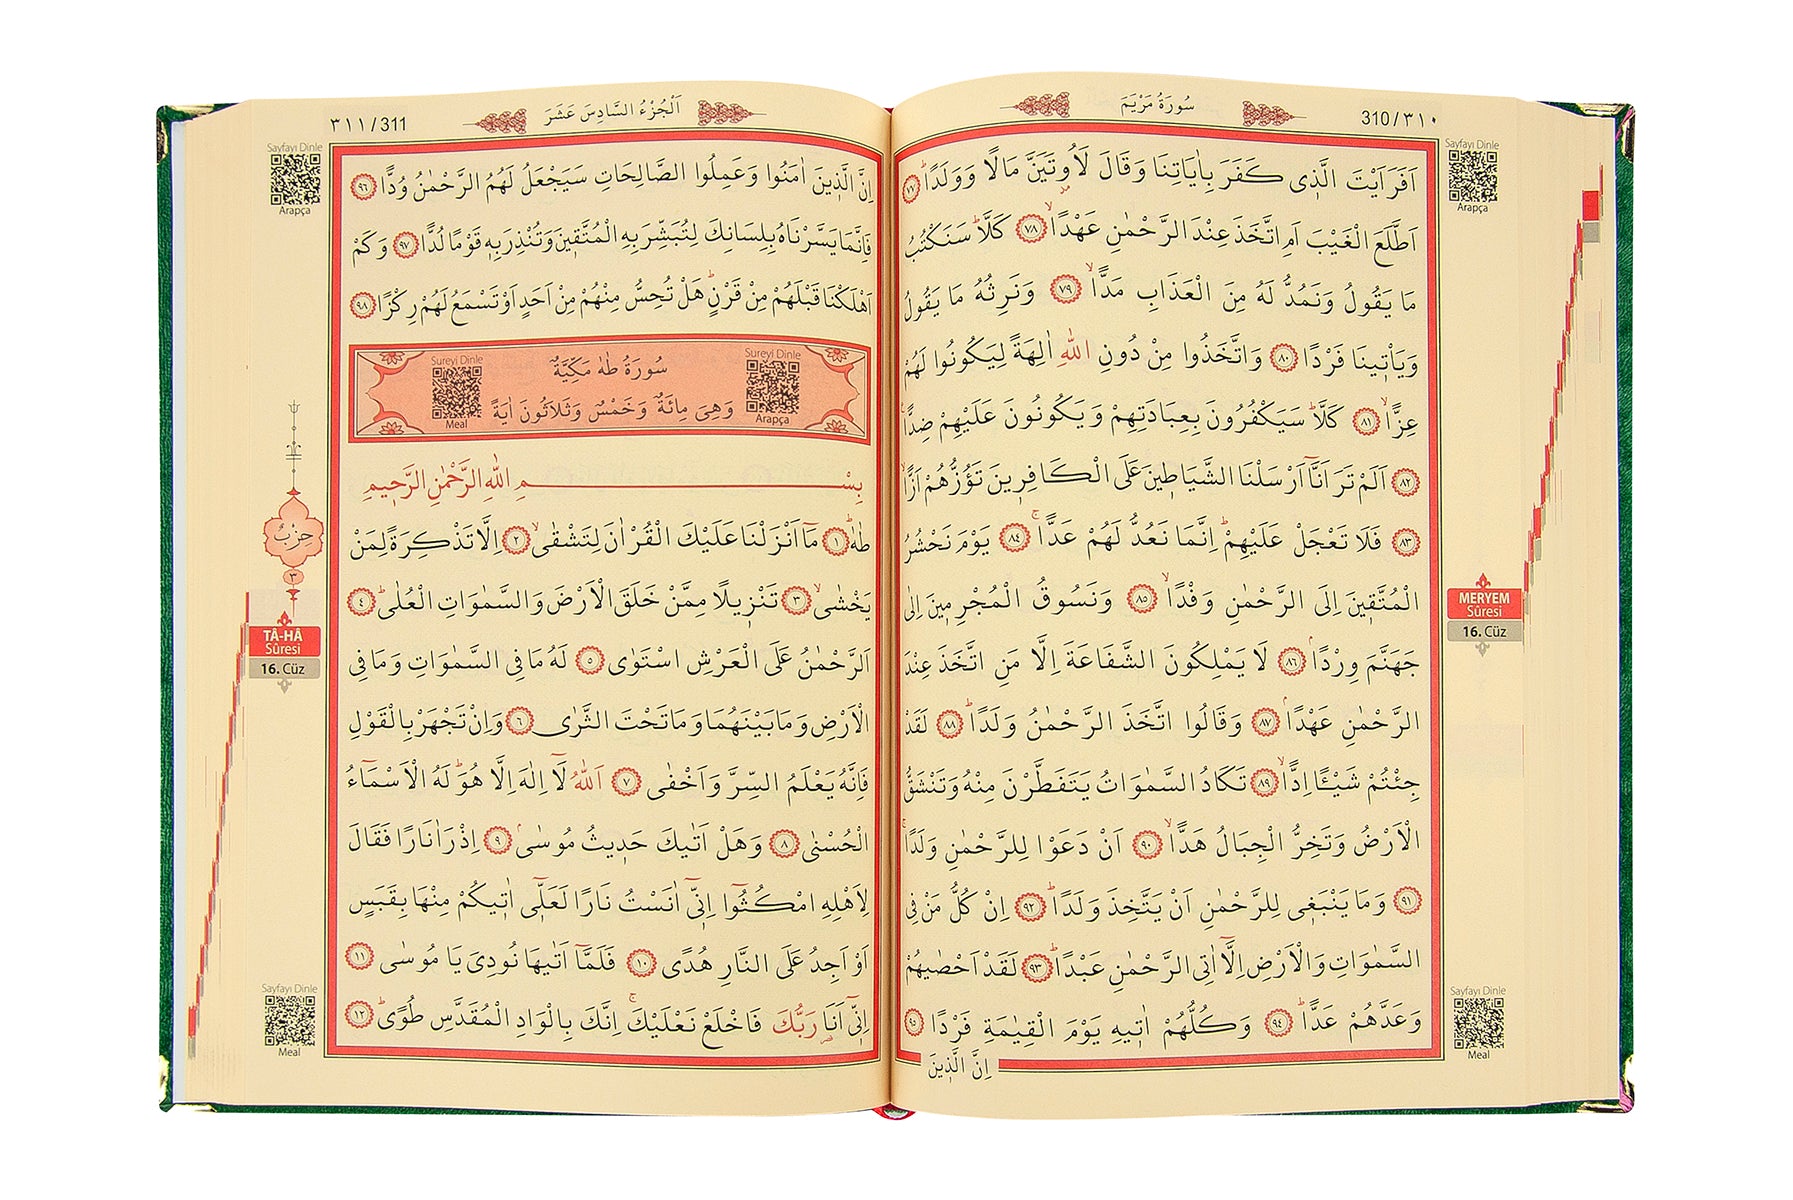 310/٣١٠
سُورَةُ مَرْيَمَ
Sayfayı Dinle
Arapça
اَفَرَاَيْتَ الَّذ۪ي كَفَرَ بِاٰيَاتِنَا وَقَالَ لَاُو۫تَيَنَّ مَالًا وَوَلَدًاۜ ﴿٧٧﴾
اَطَّلَعَ الْغَيْبَ اَمِ اتَّخَذَ عِنْدَ الرَّحْمٰنِ عَهْدًاۙ ﴿٧٨﴾ كَلَّاۜ سَنَكْتُبُ
مَا يَقُولُ وَنَمُدُّ لَهُ مِنَ الْعَذَابِ مَدًّاۙ ﴿٧٩﴾ وَنَرِثُهُ مَا يَقُولُ
وَيَأْت۪ينَا فَرْدًا ﴿٨٠﴾ وَاتَّخَذُوا مِنْ دُونِ اللّٰهِ اٰلِهَةً لِيَكُونُوا لَهُمْ
عِزًّاۙ ﴿٨١﴾ كَلَّاۜ سَيَكْفُرُونَ بِعِبَادَتِهِمْ وَيَكُونُونَ عَلَيْهِمْ ضِدًّا۟
﴿٨٢﴾ اَلَمْ تَرَ اَنَّٓا اَرْسَلْنَا الشَّيَاط۪ينَ عَلَى الْكَافِر۪ينَ تَؤُزُّهُمْ اَزًّاۙ
﴿٨٣﴾ فَلَا تَعْجَلْ عَلَيْهِمْۜ اِنَّمَا نَعُدُّ لَهُمْ عَدًّاۚ ﴿٨٤﴾ يَوْمَ نَحْشُرُ
الْمُتَّق۪ينَ اِلَى الرَّحْمٰنِ وَفْدًاۙ ﴿٨٥﴾ وَنَسُوقُ الْمُجْرِم۪ينَ اِلٰى
MERYEM
Sûresi
16. Cüz
جَهَنَّمَ وِرْدًاۢ ﴿٨٦﴾ لَا يَمْلِكُونَ الشَّفَاعَةَ اِلَّا مَنِ اتَّخَذَ عِنْدَ
الرَّحْمٰنِ عَهْدًاۢ ﴿٨٧﴾ وَقَالُوا اتَّخَذَ الرَّحْمٰنُ وَلَدًاۜ ﴿٨٨﴾ لَقَدْ
جِئْتُمْ شَيْـًٔا اِدًّاۙ ﴿٨٩﴾ تَكَادُ السَّمٰوَاتُ يَتَفَطَّرْنَ مِنْهُ وَتَنْشَقُّ
الْاَرْضُ وَتَخِرُّ الْجِبَالُ هَدًّاۙ ﴿٩٠﴾ اَنْ دَعَوْا لِلرَّحْمٰنِ وَلَدًاۚ
﴿٩١﴾ وَمَا يَنْبَغ۪ي لِلرَّحْمٰنِ اَنْ يَتَّخِذَ وَلَدًاۜ ﴿٩٢﴾ اِنْ كُلُّ مَنْ فِي
السَّمٰوَاتِ وَالْاَرْضِ اِلَّٓا اٰتِي الرَّحْمٰنِ عَبْدًاۜ ﴿٩٣﴾ لَقَدْ اَحْصٰيهُمْ
وَعَدَّهُمْ عَدًّاۜ ﴿٩٤﴾ وَكُلُّهُمْ اٰت۪يهِ يَوْمَ الْقِيٰمَةِ فَرْدًا ﴿٩٥﴾
Sayfayı Dinle
Meal
اِنَّ الَّذ۪ينَ
اَلْجُزْءُ السَّادِسَ عَشَرَ
٣١١/311
Sayfayı Dinle
Arapça
اِنَّ الَّذ۪ينَ اٰمَنُوا وَعَمِلُوا الصَّالِحَاتِ سَيَجْعَلُ لَهُمُ الرَّحْمٰنُ وُدًّا ﴿٩٦﴾
فَاِنَّمَا يَسَّرْنَاهُ بِلِسَانِكَ لِتُبَشِّرَ بِهِ الْمُتَّق۪ينَ وَتُنْذِرَ بِه۪ قَوْمًا لُدًّا ﴿٩٧﴾ وَكَمْ
اَهْلَكْنَا قَبْلَهُمْ مِنْ قَرْنٍۜ هَلْ تُحِسُّ مِنْهُمْ مِنْ اَحَدٍ اَوْ تَسْمَعُ لَهُمْ رِكْزًا ﴿٩٨﴾
Sureyi Dinle
Arapça
سُورَةُ طٰهٰ مَكِّيَّةٌ
وَهِيَ مِائَةٌ وَخَمْسٌ وَثَلَاثُونَ اٰيَةً
Sureyi Dinle
Meal
بِسْمِ اللّٰهِ الرَّحْمٰنِ الرَّح۪يمِ
حِزْبٌ
٣
طٰهٰۜ ﴿١﴾ مَٓا اَنْزَلْنَا عَلَيْكَ الْقُرْاٰنَ لِتَشْقٰىۙ ﴿٢﴾ اِلَّا تَذْكِرَةً لِمَنْ
يَخْشٰىۙ ﴿٣﴾ تَنْز۪يلًا مِمَّنْ خَلَقَ الْاَرْضَ وَالسَّمٰوَاتِ الْعُلٰىۜ ﴿٤﴾
TÂ-HÂ
Sûresi
16. Cüz
اَلرَّحْمٰنُ عَلَى الْعَرْشِ اسْتَوٰى ﴿٥﴾ لَهُ مَا فِي السَّمٰوَاتِ وَمَا فِي
الْاَرْضِ وَمَا بَيْنَهُمَا وَمَا تَحْتَ الثَّرٰى ﴿٦﴾ وَاِنْ تَجْهَرْ بِالْقَوْلِ
فَاِنَّهُ يَعْلَمُ السِّرَّ وَاَخْفٰى ﴿٧﴾ اَللّٰهُ لَٓا اِلٰهَ اِلَّا هُوَۜ لَهُ الْاَسْمَٓاءُ
الْحُسْنٰى ﴿٨﴾ وَهَلْ اَتٰيكَ حَد۪يثُ مُوسٰىۢ ﴿٩﴾ اِذْ رَاٰ نَارًا فَقَالَ
لِاَهْلِهِ امْكُـثُٓوا اِنّ۪ٓي اٰنَسْتُ نَارًا لَعَلّ۪ٓي اٰت۪يكُمْ مِنْهَا بِقَبَسٍ
اَوْ اَجِدُ عَلَى النَّارِ هُدًى ﴿١٠﴾ فَلَمَّٓا اَتٰيهَا نُودِيَ يَا مُوسٰى ﴿١١﴾
اِنّ۪ٓي اَنَا۬ رَبُّكَ فَاخْلَعْ نَعْلَيْكَۚ اِنَّكَ بِالْوَادِ الْمُقَدَّسِ طُوًىۜ ﴿١٢﴾
Sayfayı Dinle
Meal